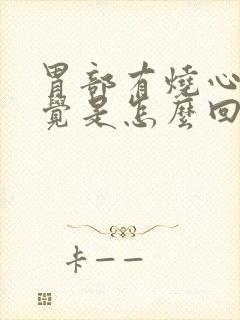 胃部有燒心
覺是怎麼回
卡——